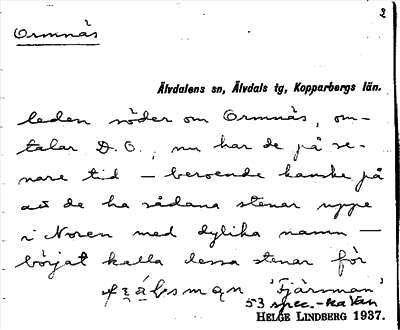 2
Ormnäs
Älvdalens sn, Älvdals tg, Kopparbergs län.
leden söder om Ormnäs, om-
talar D. O., nu har de på se-
nare tid – beroende kanske på
att de ha sådana stenar uppe
i Noren med dylika namn –
börjat kalla dessa stenar för
'Fjärsman'
53 spec.-ka Van
HELGE LINDBERG 1937.